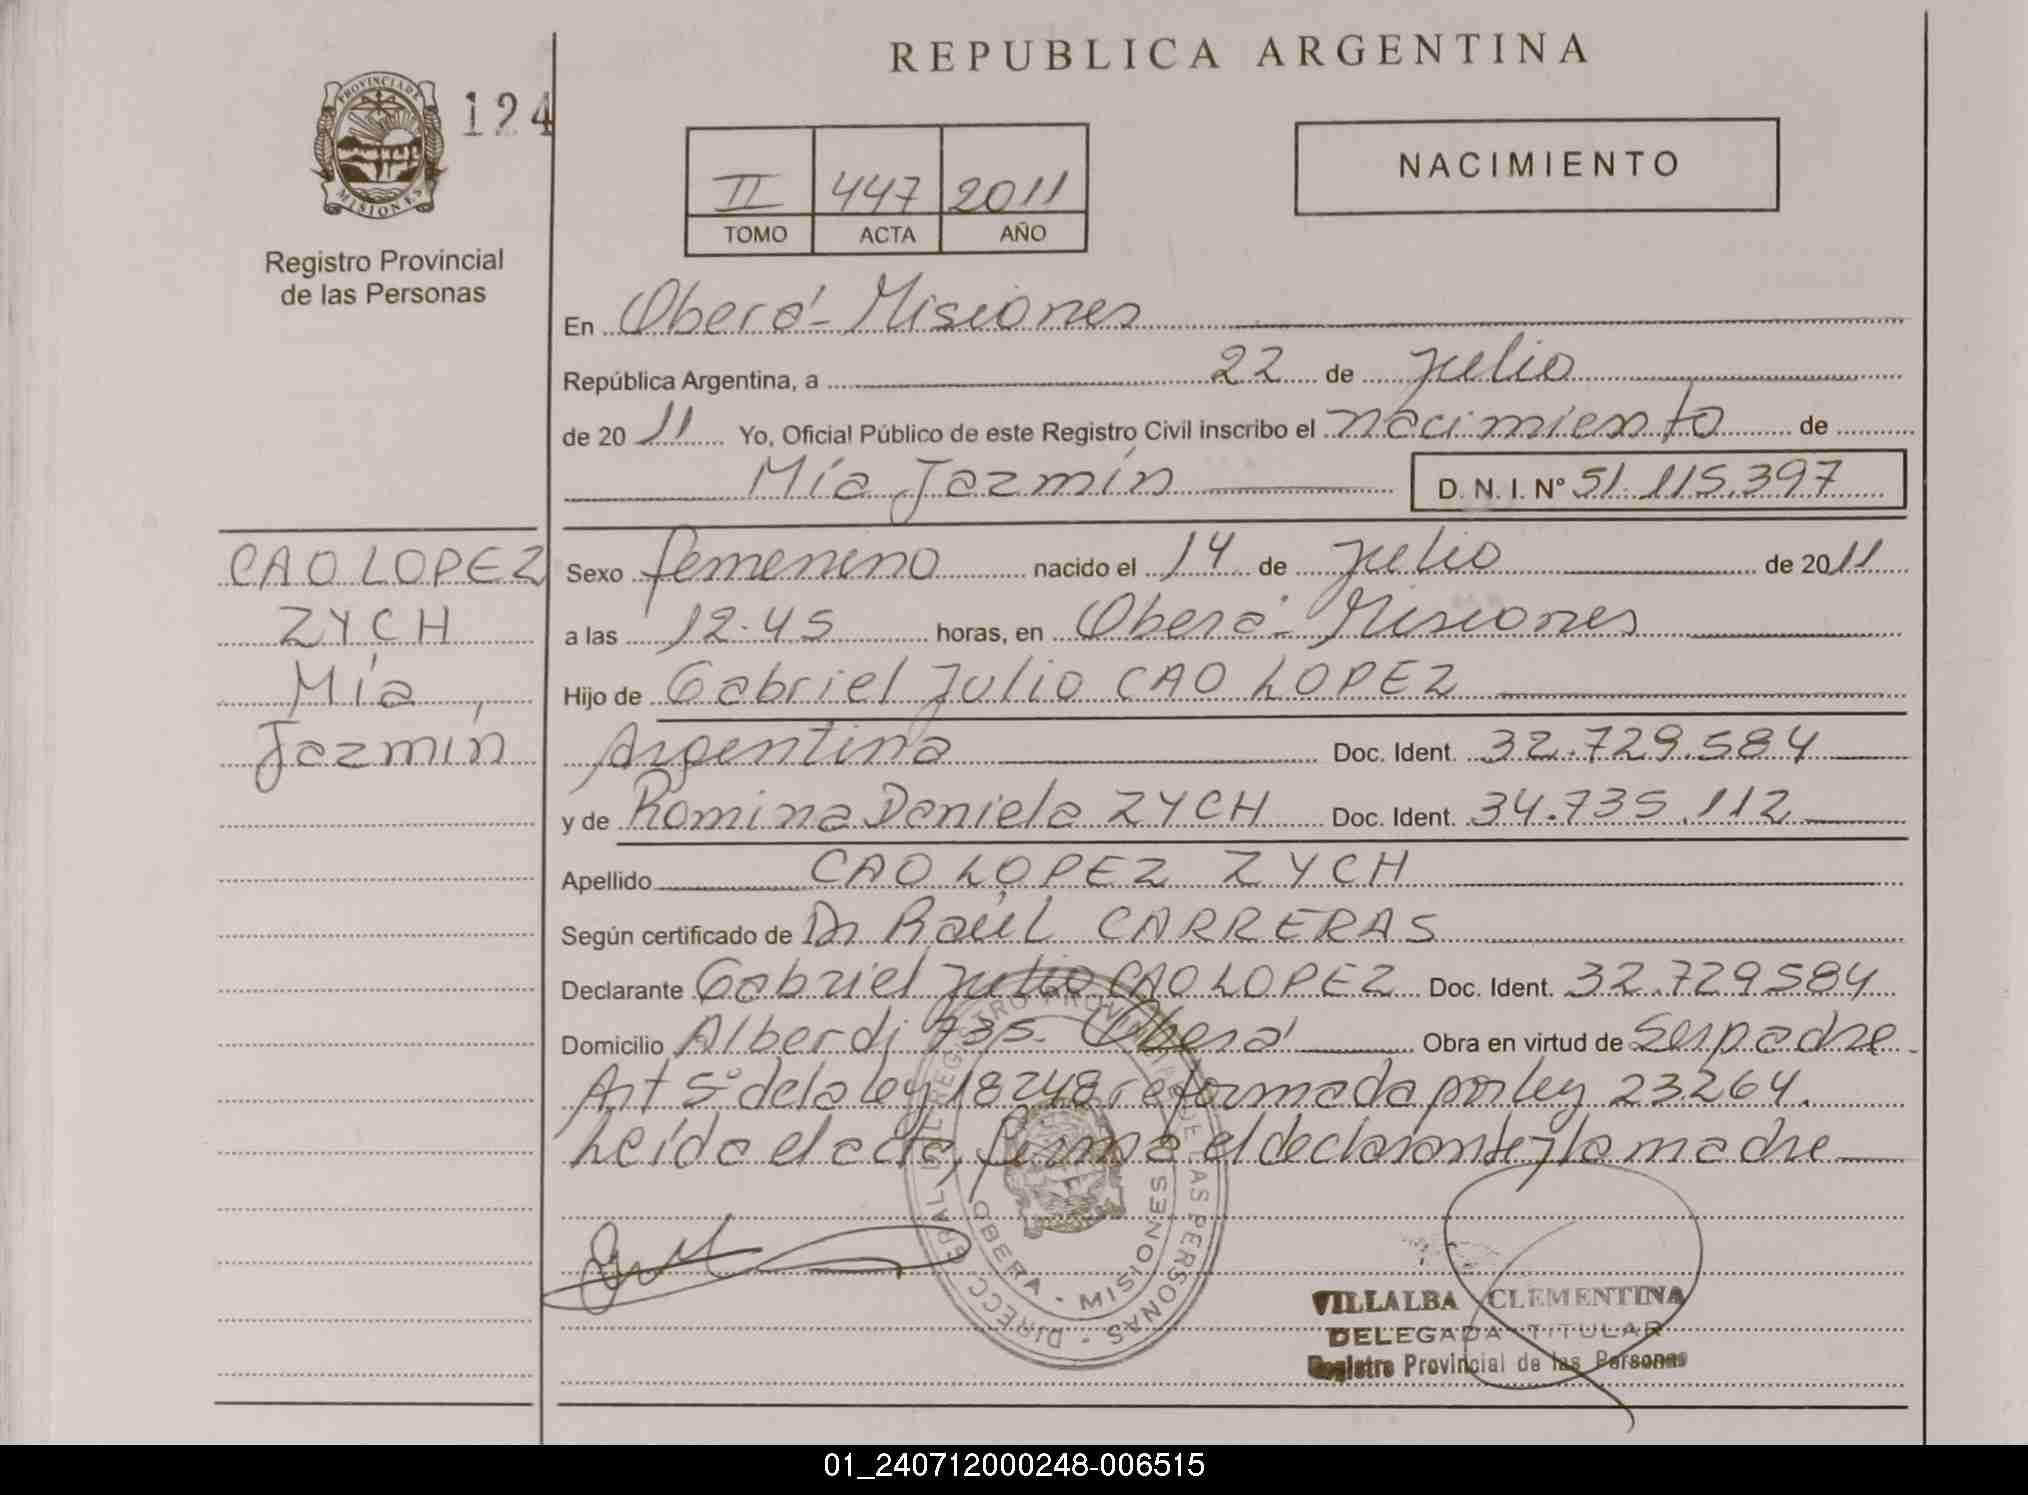 REPUBLICA ARGENTINA
PROVINCIA DE
MISIONES
124
Registro Provincial
de las Personas
II 447 2011
TOMO ACTA AÑO
NACIMIENTO
En Oberá - Misiones
República Argentina, a 22 de Julio
de 2011 Yo, Oficial Público de este Registro Civil inscribo el nacimiento de
Mía Jazmín D. N. I. Nº 51.115.397
CAO LOPEZ
ZYCH
Mía
Jazmín
Sexo femenino nacido el 14 de Julio de 2011
a las 12.45 horas, en Oberá - Misiones
Hijo de Gabriel Julio CAO LOPEZ
Argentina Doc. Ident. 32.729.584
y de Romina Daniela ZYCH Doc. Ident. 34.735.112
Apellido CAO LOPEZ ZYCH
Según certificado de Dr Raúl CARRERAS
Declarante Gabriel Julio CAO LOPEZ Doc. Ident. 32.729584
Domicilio Alberdi 735. Oberá Obra en virtud de Ser padre.
Art 5º de la ley 18248 reformada por ley 23264.
Leído el acta, firma el declarante y la madre
OBERA - MISIONES
VILLALBA CLEMENTINA
DELEGADA TITULAR
Registro Provincial de las Personas
01_240712000248-006515